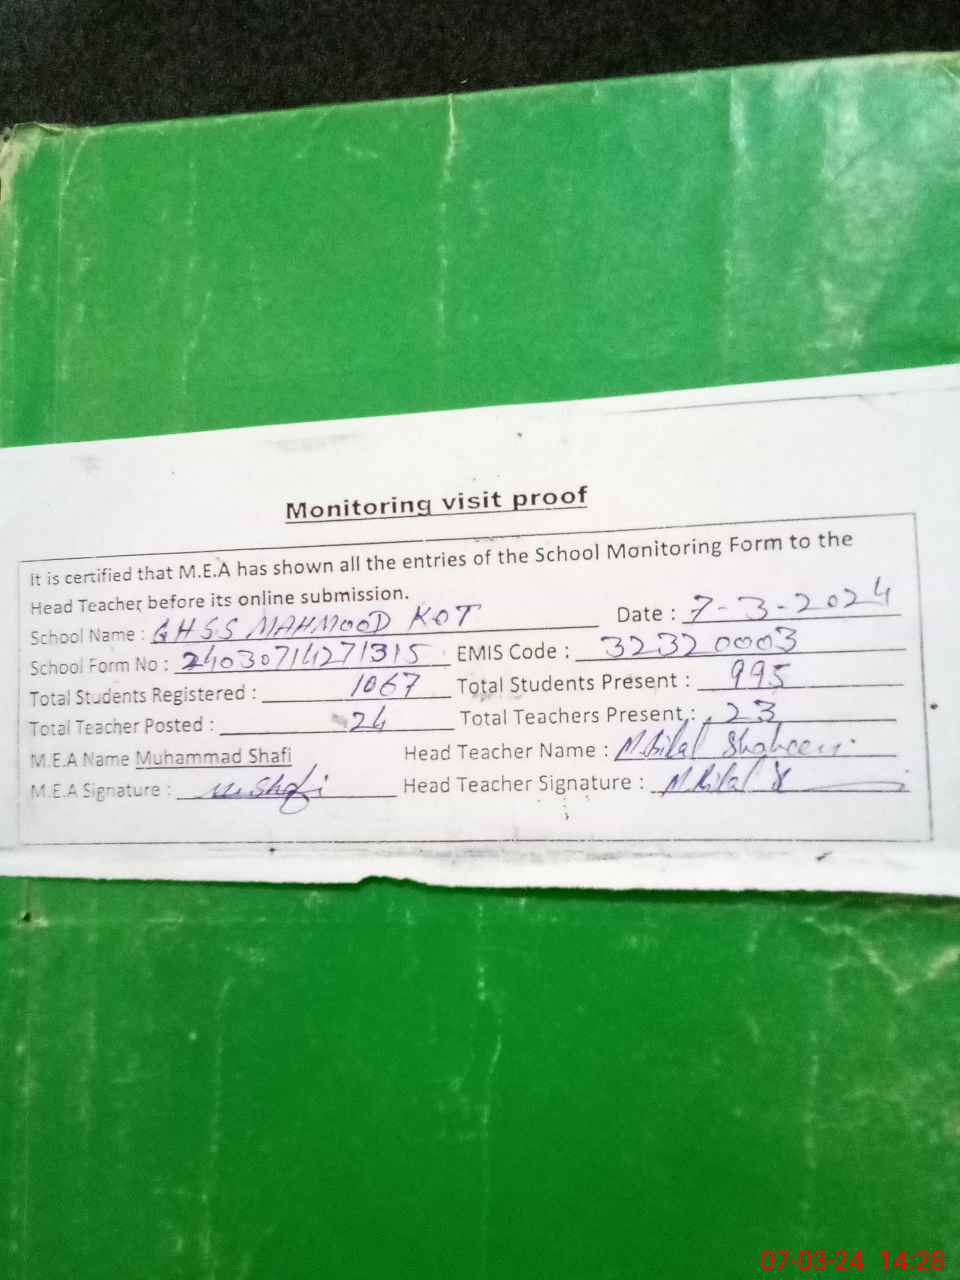 Monitoring visit proof
It is certified that M.E.A has shown all the entries of the School Monitoring Form to the
Head Teacher before its online submission.
School Name : GHSS MAHMOOD KOT Date : 7-3-2024
School Form No : 24030714271315 EMIS Code : 32320003
Total Students Registered : 1067 Total Students Present : 995
Total Teacher Posted : 24 Total Teachers Present : 23
M.E.A Name Muhammad Shafi Head Teacher Name : M.Bilal Shaheen
M.E.A Signature : M.Shafi Head Teacher Signature : M.Bilal
07-03-24 14:28